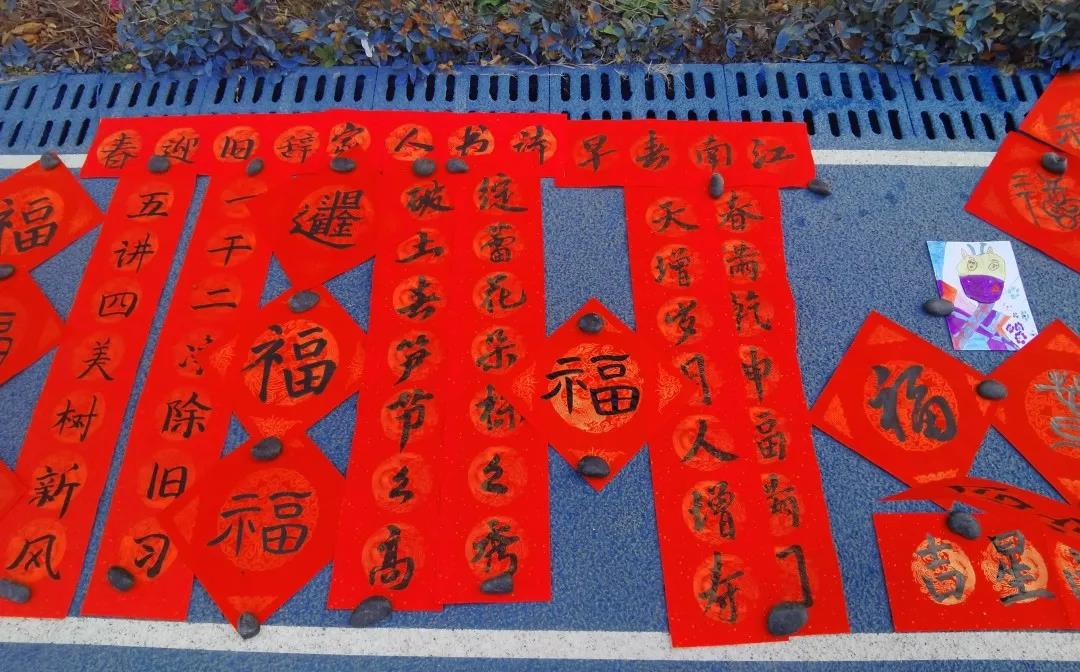 辞旧迎春
五讲四美树新风
一干二净除旧习
诗书人家
破土春笋节々高
绽蕾花朵々秀
江南春早
天增岁月人增寿
春满乾坤福满门
福
福
福
福
福
吉星